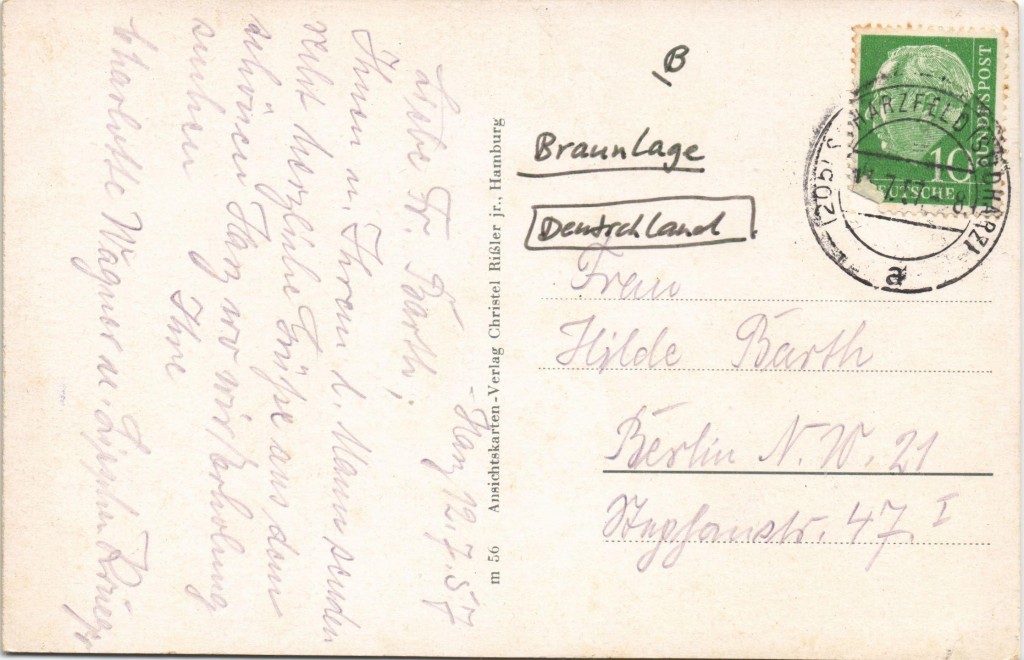 Harz 12.7.57
Liebe Fr. Barth,
Ihnen u. Ihrem l. Mann senden
recht herzliche Grüße aus dem
schönen Harz, wo wir Erholung
suchen
Ihre
Charlotte Wagner u.
m 56 Ansichtskarten-Verlag Christel Rißler jr., Hamburg
B
Braunlage
Deutschland
Frau
Hilde Barth
Berlin N.W. 21
Stephanstr. 47 I
DEUTSCHE BUNDESPOST
10
SCHARZFELD (SÜDHARZ)
a